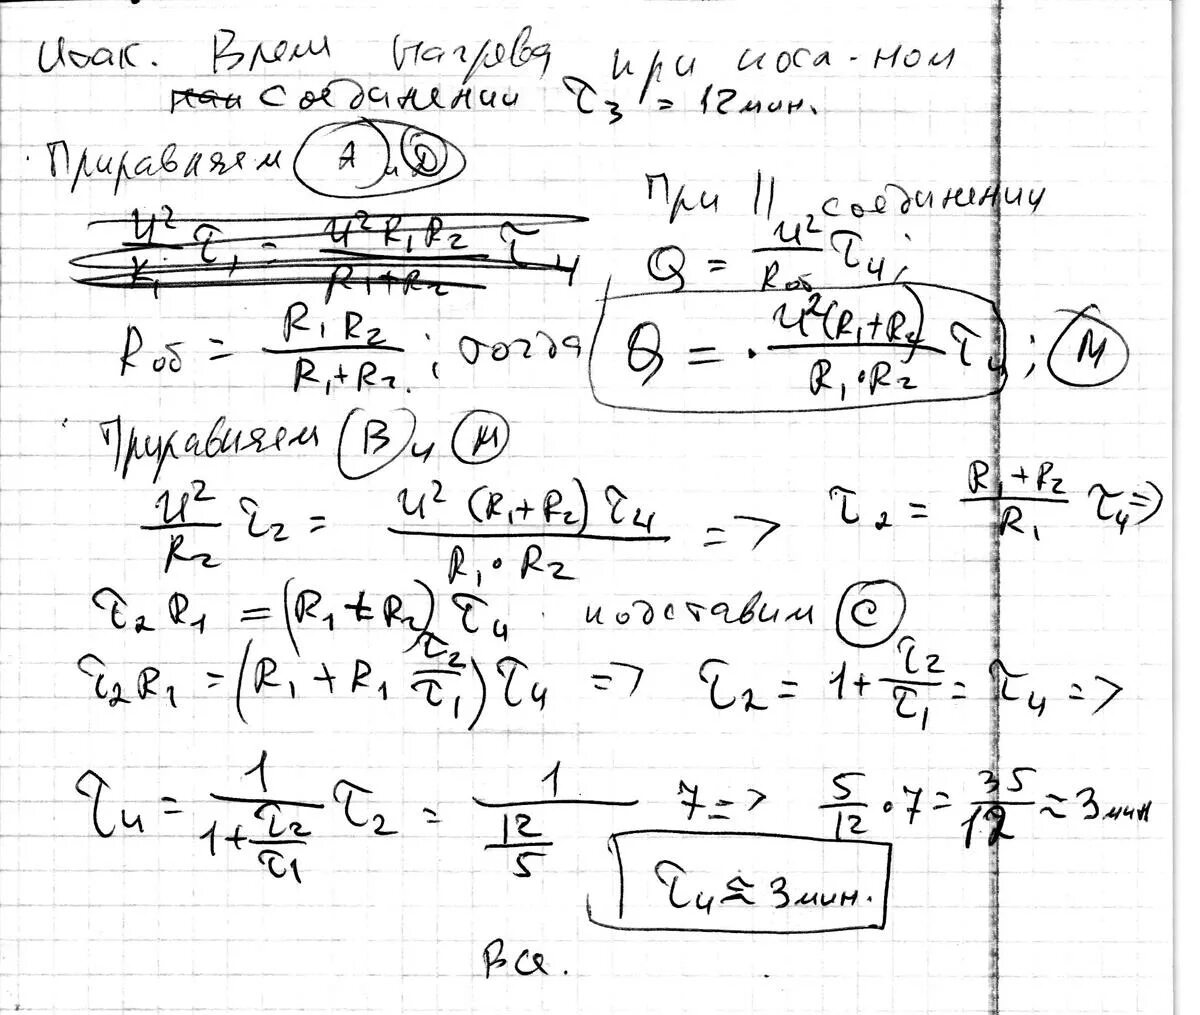 Итак. Время нагрева при посл-ном
соединении τ₃ = 12 мин.
Приравняем (A) и (D)
При || соединении
Q = U²/Rоб τ₄;
Rоб = R₁R₂/(R₁+R₂); тогда Q = U²(R₁+R₂)/(R₁·R₂) τ₄; (M)
Приравняем (B) и (M)
U²/R₂ τ₂ = U²(R₁+R₂)τ₄/(R₁·R₂) => τ₂ = (R₁+R₂)/R₁ τ₄ =>
τ₂R₁ = (R₁+R₂)τ₄ подставим (C)
τ₂R₁ = (R₁+R₁ τ₂/τ₁)τ₄ => τ₂ = 1+τ₂/τ₁ = τ₄ =>
τ₄ = 1/(1+τ₂/τ₁) τ₂ = 1/(12/5) 7 => 5/12 · 7 = 35/12 ≈ 3 мин
τ₄ ≈ 3 мин.
Все.